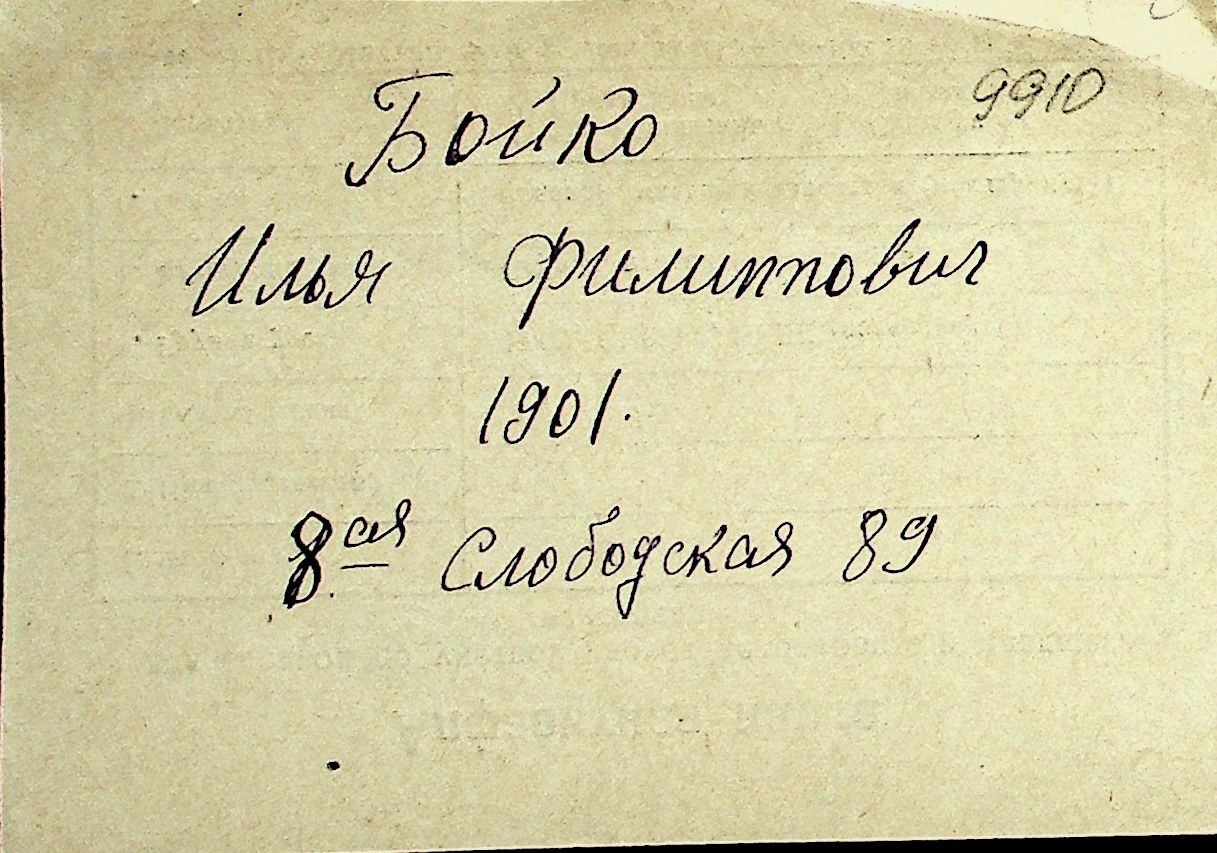 9910
Бойко
Илья Филиппович
1901.
8ая Слободская 89